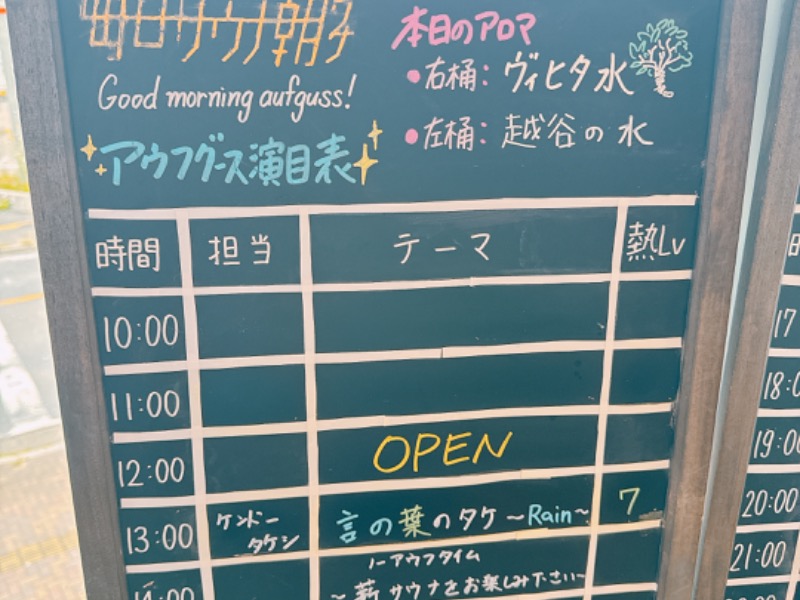 毎日サウナ朝子
Good morning aufguss!
アウフグース演目表
本日のアロマ
●右桶: ヴィヒタ水
●左桶: 越谷の水
時間 担当 テーマ 熱Lv
10:00
11:00
12:00 OPEN
13:00 ケンドータケシ 言の葉のタケ ~Rain~ 7
14:00 ノーアウフタイム
~薪サウナをお楽しみ下さい~
17
18:0
19:00
20:00
21:00